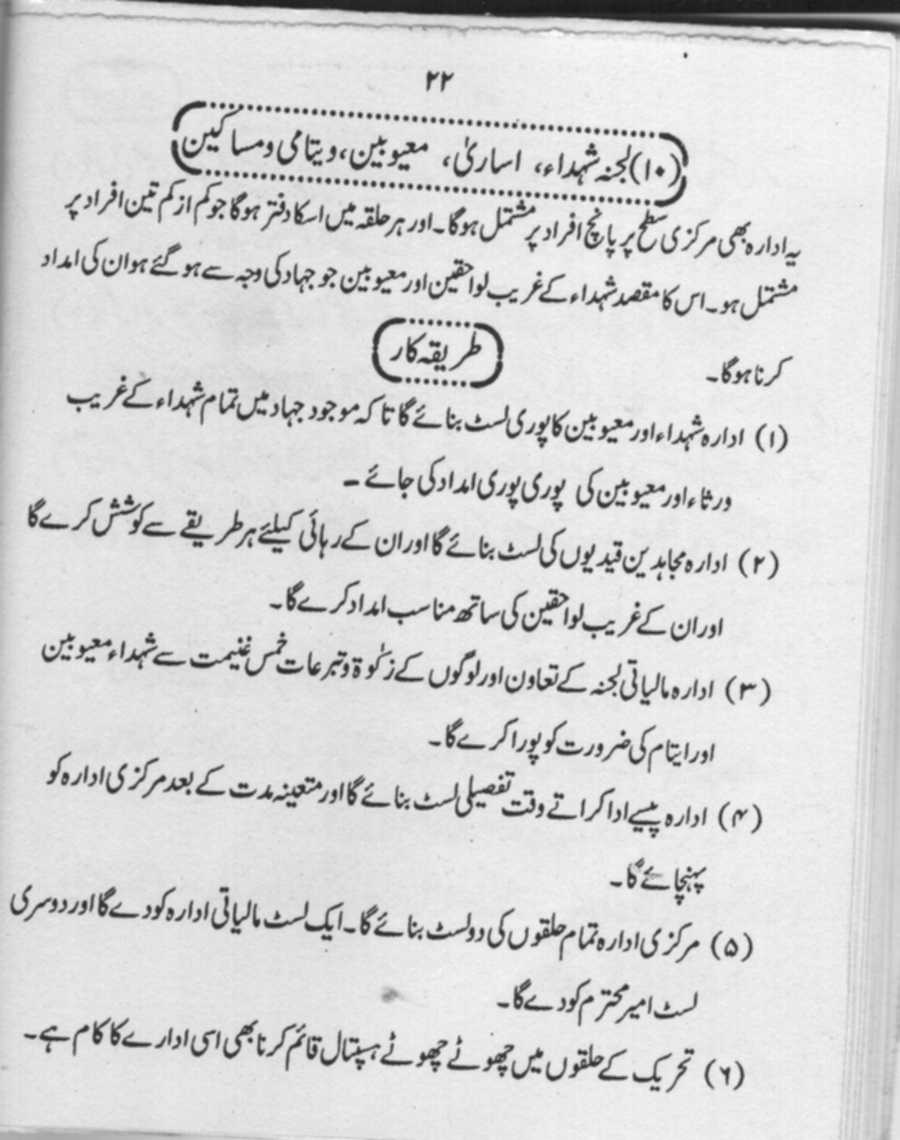 ۲۲
(۱۰) لجنہ شہداء، اساریٰ، معیوبین، ویتامی ومساکین
یہ ادارہ بھی مرکزی سطح پر پانچ افراد پر مشتمل ہوگا۔ اور ہر حلقہ میں اسکا دفتر ہوگا جو کم از کم تین افراد پر
مشتمل ہو۔ اس کا مقصد شہداء کے غریب لواحقین اور معیوبین جو جہاد کی وجہ سے ہو گئے ہو ان کی امداد
کرنا ہوگا۔
طریقہ کار
(۱) ادارہ شہداء اور معیوبین کا پوری لسٹ بنائے گا تاکہ موجود جہاد میں تمام شہداء کے غریب
ورثاء اور معیوبین کی پوری پوری امداد کی جائے ۔
(۲) ادارہ مجاہدین قیدیوں کی لسٹ بنائے گا اور ان کے رہائی کیلئے ہر طریقے سے کوشش کرے گا
اور ان کے غریب لواحقین کی ساتھ مناسب امداد کرے گا۔
(۳) ادارہ مالیاتی لجنہ کے تعاون اور لوگوں کے زکوٰۃ و تبرعات خمس غنیمت سے شہداء معیوبین
اور ایتام کی ضرورت کو پورا کرے گا۔
(۴) ادارہ پیسے ادا کراتے وقت تفصیلی لسٹ بنائے گا اور متعینہ مدت کے بعد مرکزی ادارہ کو
پہنچائے گا۔
(۵) مرکزی ادارہ تمام حلقوں کی دو لسٹ بنائے گا۔ ایک لسٹ مالیاتی ادارہ کو دے گا اور دوسری
لسٹ امیر محترم کو دے گا۔
(۶) تحریک کے حلقوں میں چھوٹے چھوٹے ہسپتال قائم کرنا بھی اسی ادارے کا کام ہے۔